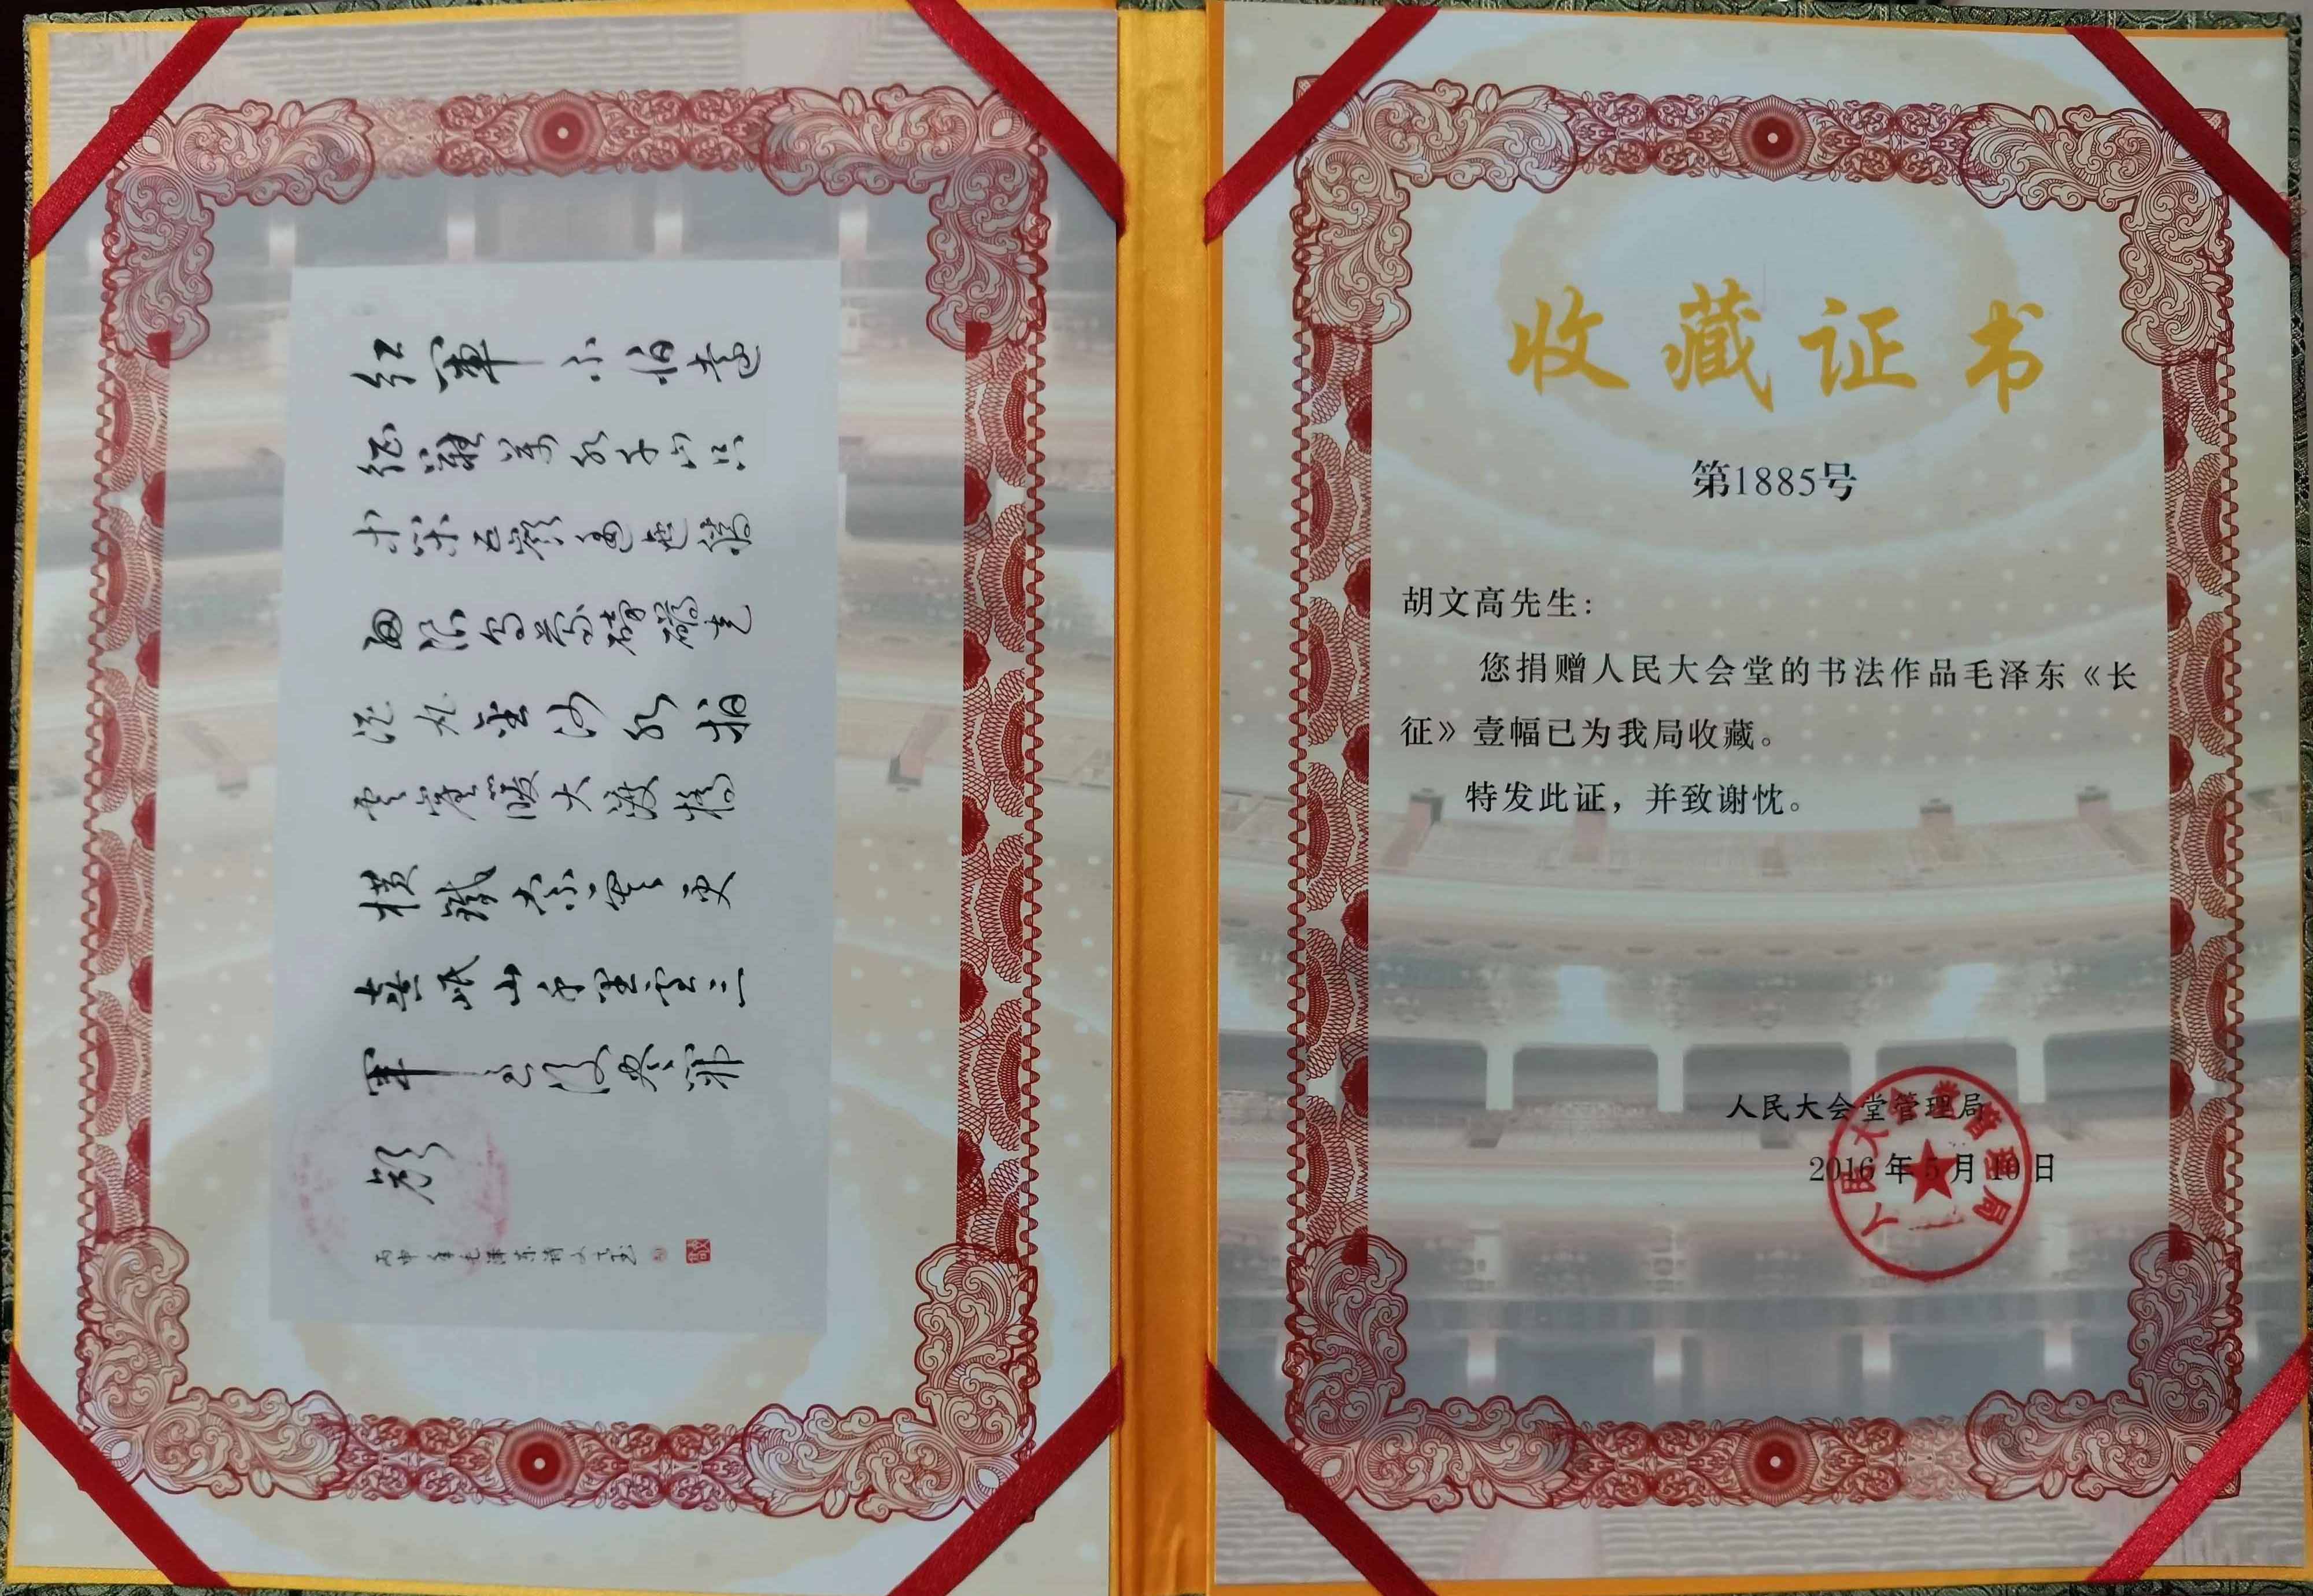 红軍不怕遠
征難萬水千山只
等闲五嶺逶迤騰
細浪烏蒙磅礴走
泥丸金沙水拍
雲崖暖大渡橋
横鐵索寒更
喜岷山千里雪三
軍過後盡開
顏
丙申年毛澤東詩
收藏证书
第1885号
胡文高先生：
您捐赠人民大会堂的书法作品毛泽东《长
征》壹幅已为我局收藏。
特发此证，并致谢忱。
人民大会堂管理局
2016年5月10日
人民大会堂管理局